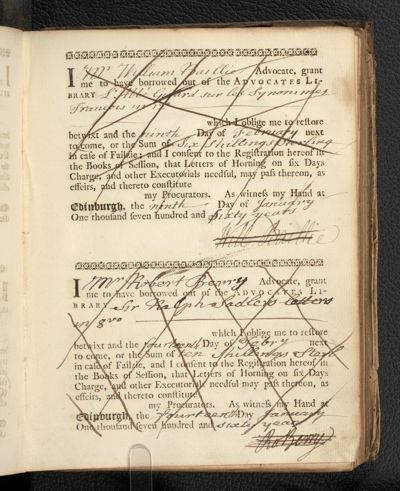 I Mr William Baillie Advocate, grant
me to have borrowed out of the ADVOCATES LI-
BRARY L'Abbé Girard sur les Synonimes
Francois in
which I oblige me to restore
betwixt and the ninth Day of February next
to come, or the Sum of Six Shillings Sterling
in case of Failzie; and I consent to the Registration hereof in
the Books of Session, that Letters of Horning on six Days
Charge, and other Executorials needful, may pass thereon, as
effeirs, and thereto constitute
my Procurators. As witness my Hand at
Edinburgh, the ninth Day of January
One thousand seven hundred and sixty years
Will Baillie
I Mr Robert Berry Advocate, grant
me to have borrowed out of the ADVOCATES LI-
BRARY Sir Ralph Sadlers letters
in 8vo
which I oblige me to restore
betwixt and the fourteenth Day of Febry next
to come, or the Sum of ten Shillings Sterl
in case of Failzie, and I consent to the Registration hereof in
the Books of Session, that Letters of Horning on six Days
Charge, and other Executorials needful may pass thereon, as
effeirs, and thereto constitute
my Procurators. As witness my Hand at
Edinburgh, the fourteenth Day January
One thousand seven hundred and sixty years
Ro Berry